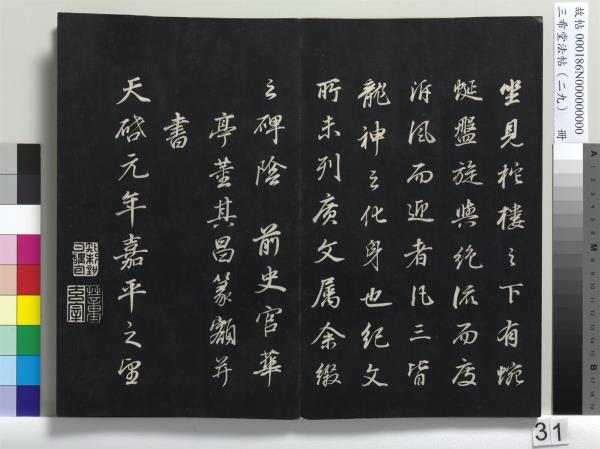 坐見柁樓之下有蜿
蜒盤旋與絶流而度
泝風而迎者凡三皆
龍神之化身也紀文
所未列廣文屬余綴
之碑陰　前史官華
亭董其昌篆額并
書
天啓元年嘉平之望
故帖 000186N000000000
三希堂法帖（二九） 冊
31